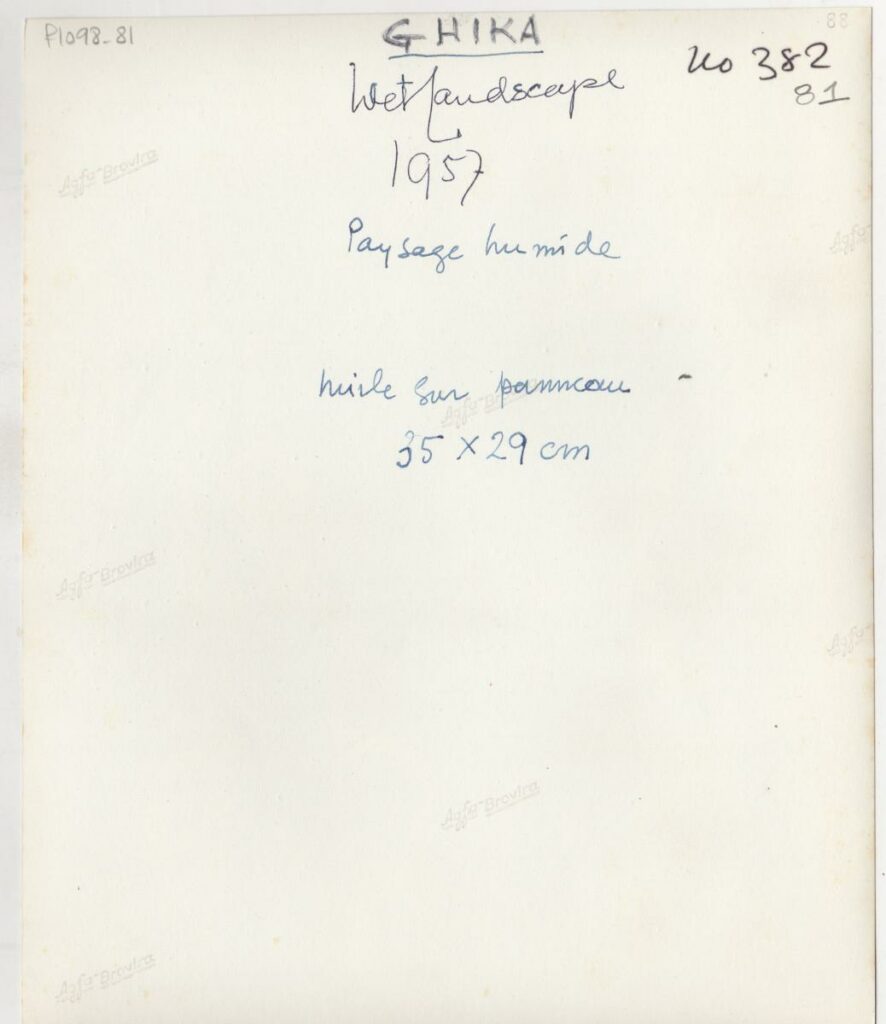 P1098-81
88
GHIKA
No 382
81
Wet landscape
1957
Paysage humide
huile sur panneau -
35 x 29 cm
Agfa-Brovira
Agfa-
Agfa-Brovira
Agfa-Brovira
Agfa-
Agfa-Brovira
Agfa-Brovira